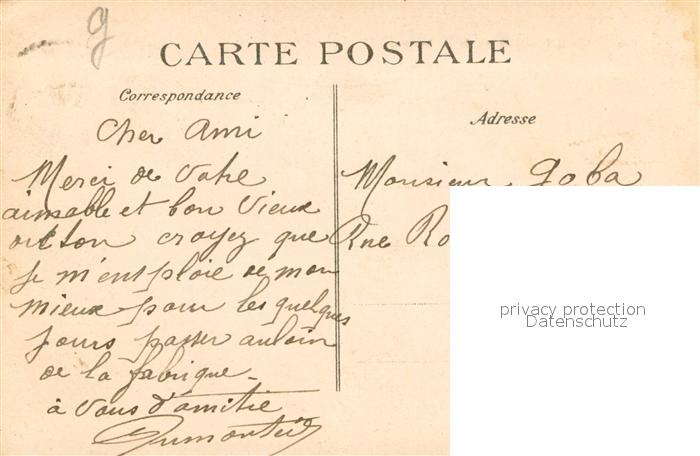 g
CARTE POSTALE
Correspondance
Cher Ami
Merci de Votre
aimable et bon Vieux
croyez que
je m'emploie de mon
mieux pour les quelques
jours passer au loin
de la fabrique_
à Vous d'amitié
Adresse
Monsieur Goba
Rue Ro
privacy protection
Datenschutz